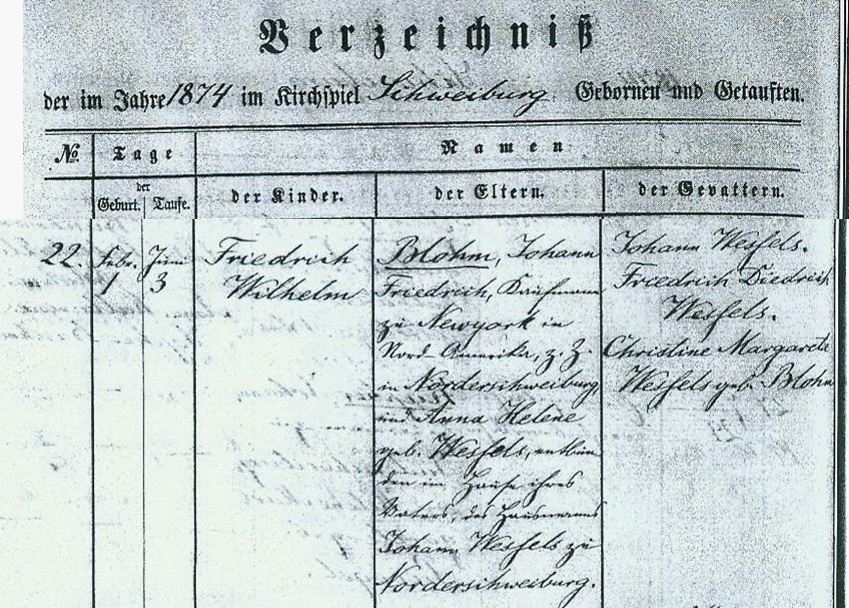 Verzeichniß
der im Jahre 1874 im Kirchspiel Schweiburg Gebornen und Getauften.
No. Tage Namen
der
Geburt. Taufe. der Kinder. der Eltern. der Gevattern.
22. Febr. 1 Juni 3
Friedrich
Wilhelm
Blohm, Johann
Friedrich, Kaufmann
zu Newyork in
Nord Amerika, z. Z.
in Norderschweiburg,
und Anna Helene
geb. Wessels, entbun
den im Hause ihres
Vaters, des Hausmanns
Johann Wessels zu
Norderschweiburg.
Johann Wessels.
Friedrich Diedrich
Wessels.
Christine Margarete
Wessels geb. Blohm